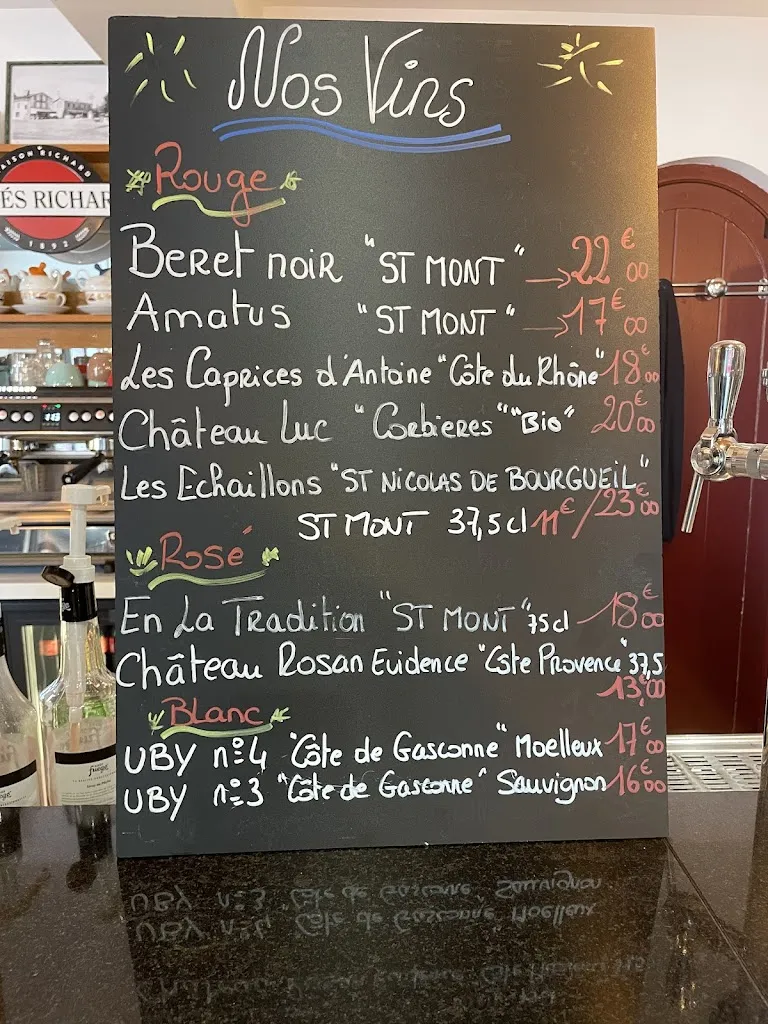 Nos Vins
Rouge
Beret noir "ST MONT" → 22€00
Amatus "ST MONT" → 17€00
Les Caprices d'Antoine "Côte du Rhône" 18€00
Château Luc "Corbieres" "Bio" 20€00
Les Echaillons "ST NICOLAS DE BOURGUEIL"
ST MONT 37,5cl 11€/23€00
Rosé
En La Tradition "ST MONT" 75cl 18€00
Château Rosan Evidence "Côte Provence" 37,5
13,€00
Blanc
UBY n°4 "Côte de Gasconne" Moelleux 17€00
UBY n°3 "Côte de Gasconne" Sauvignon 16€00
AISON RICHARD
ÉS RICHAR
1892